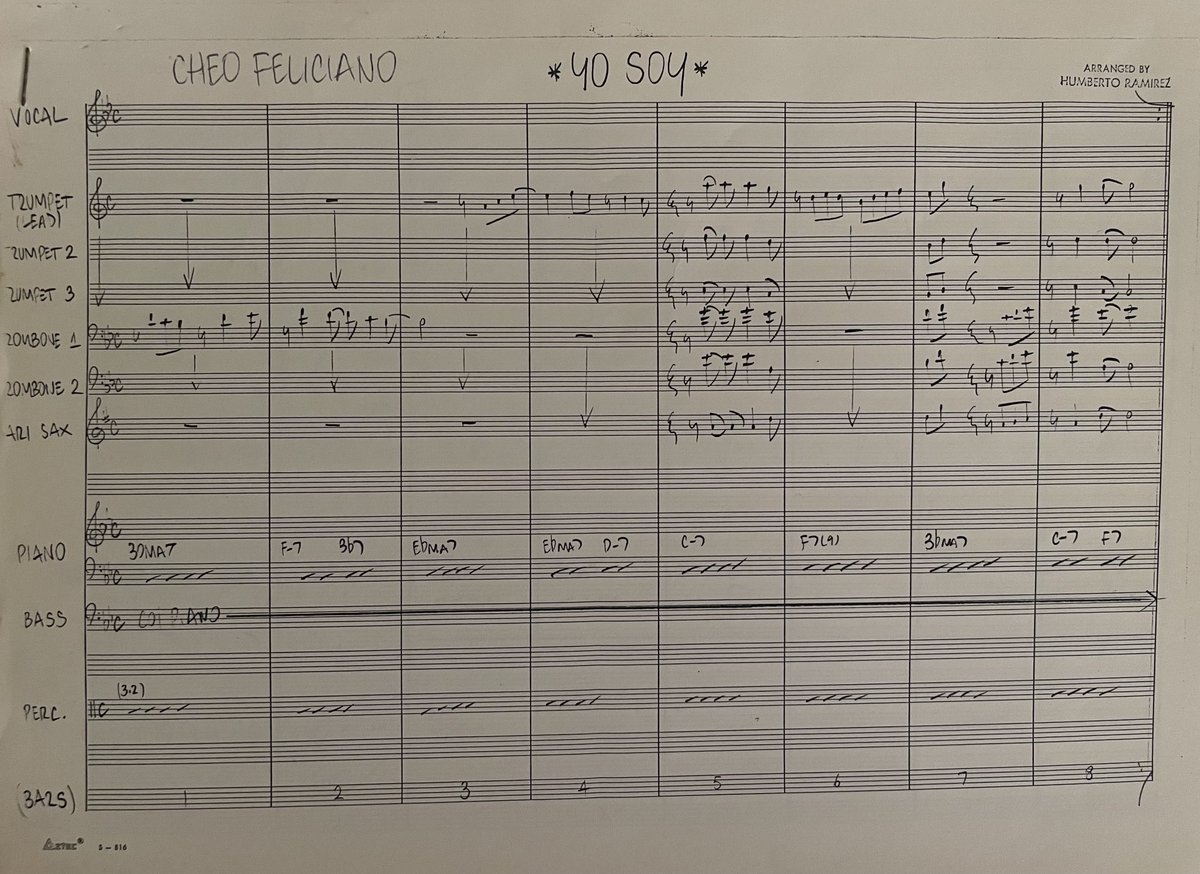 1
CHEO FELICIANO
*YO SOY*
ARRANGED BY
HUMBERTO RAMIREZ
VOCAL
TRUMPET
(LEAD)
TRUMPET 2
TRUMPET 3
TROMBONE 1
TROMBONE 2
BARI SAX
PIANO
BbMA7 F-7 Bb7 EbMA7 EbMA7 D-7 C-7 F7(9) BbMA7 C-7 F7
BASS
COL PIANO
(3.2)
PERC.
(BARS) 1 2 3 4 5 6 7 8
AZTEC® S-816